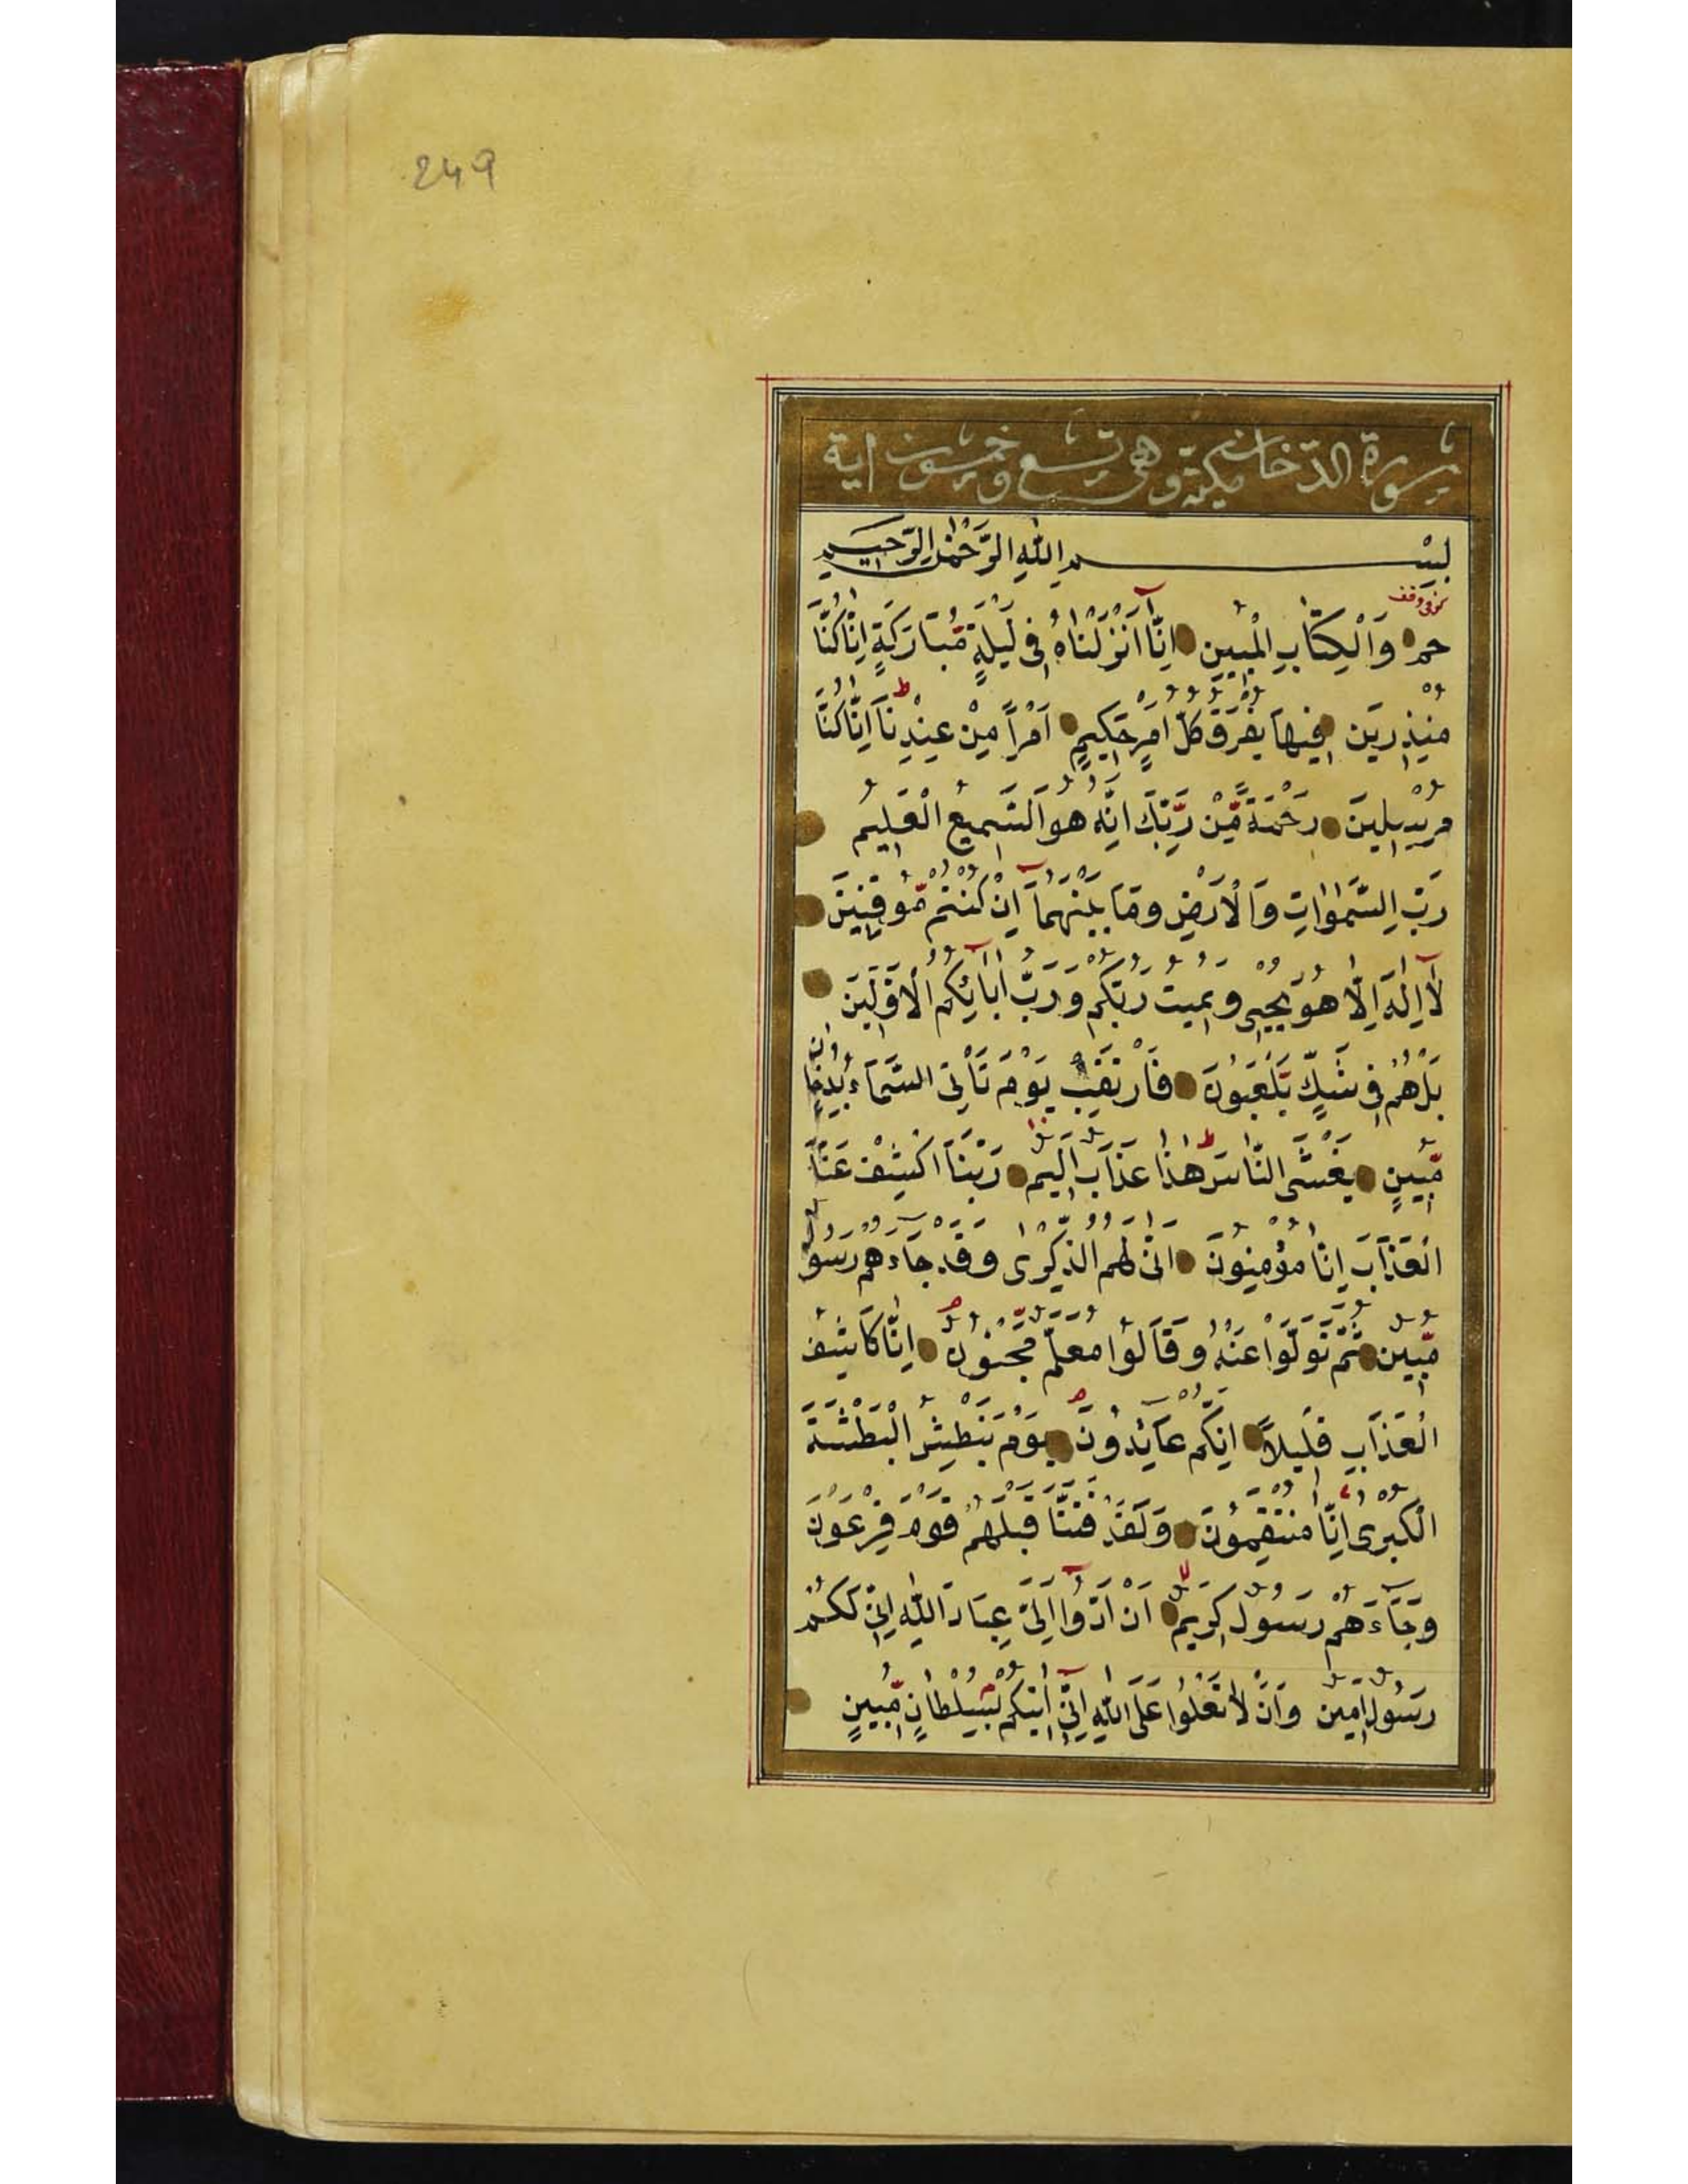 249
سورة الدّخان مكيّة وهى تسع وخمسون اية
بِسْمِ اللّٰهِ الرَّحْمٰنِ الرَّحيمِ
كوفى وقف
حم وَالْكِتَابِ الْمُبينِ اِنَّا اَنْزَلْنَاهُ فى لَيْلَةٍ مُّبَارَكَةٍ اِنَّا كُنَّا
مُنْذِرينَ فيهَا يُفْرَقُ كُلُّ اَمْرٍ حَكيمٍ اَمْرًا مِنْ عِنْدِنَا اِنَّا كُنَّا
ط
مُرْسِلينَ رَحْمَةً مِّنْ رَّبِّكَ اِنَّهُ هُوَ السَّميعُ الْعَليمُ
رَبِّ السَّمٰوَاتِ وَالْاَرْضِ وَمَا بَيْنَهُمَا اِنْ كُنْتُمْ مُّوقِنينَ
لَا اِلٰهَ اِلَّا هُوَ يُحْيى وَيُميتُ رَبُّكُمْ وَرَبُّ اٰبَائِكُمُ الْاَوَّلينَ
بَلْ هُمْ فى شَكٍّ يَلْعَبُونَ فَارْتَقِبْ يَوْمَ تَأْتِى السَّمَاءُ بِدُخَانٍ
مُّبينٍ يَغْشَى النَّاسَ هٰذَا عَذَابٌ اَليمٌ رَبَّنَا اكْشِفْ عَنَّا
ط
الْعَذَابَ اِنَّا مُؤْمِنُونَ اَنّٰى لَهُمُ الذِّكْرٰى وَقَدْ جَاءَهُمْ رَسُولٌ
مُّبينٌ ثُمَّ تَوَلَّوْا عَنْهُ وَقَالُوا مُعَلَّمٌ مَّجْنُونٌ اِنَّا كَاشِفُ
الْعَذَابِ قَليلًا اِنَّكُمْ عَائِدُونَ يَوْمَ نَبْطِشُ الْبَطْشَةَ
الْكُبْرٰى اِنَّا مُنْتَقِمُونَ وَلَقَدْ فَتَنَّا قَبْلَهُمْ قَوْمَ فِرْعَوْنَ
وَجَاءَهُمْ رَسُولٌ كَريمٌ اَنْ اَدُّوا اِلَىَّ عِبَادَ اللّٰهِ اِنّى لَكُمْ
رَسُولٌ اَمينٌ وَاَنْ لَا تَعْلُوا عَلَى اللّٰهِ اِنّى اٰتيكُمْ بِسُلْطَانٍ مُّبينٍ